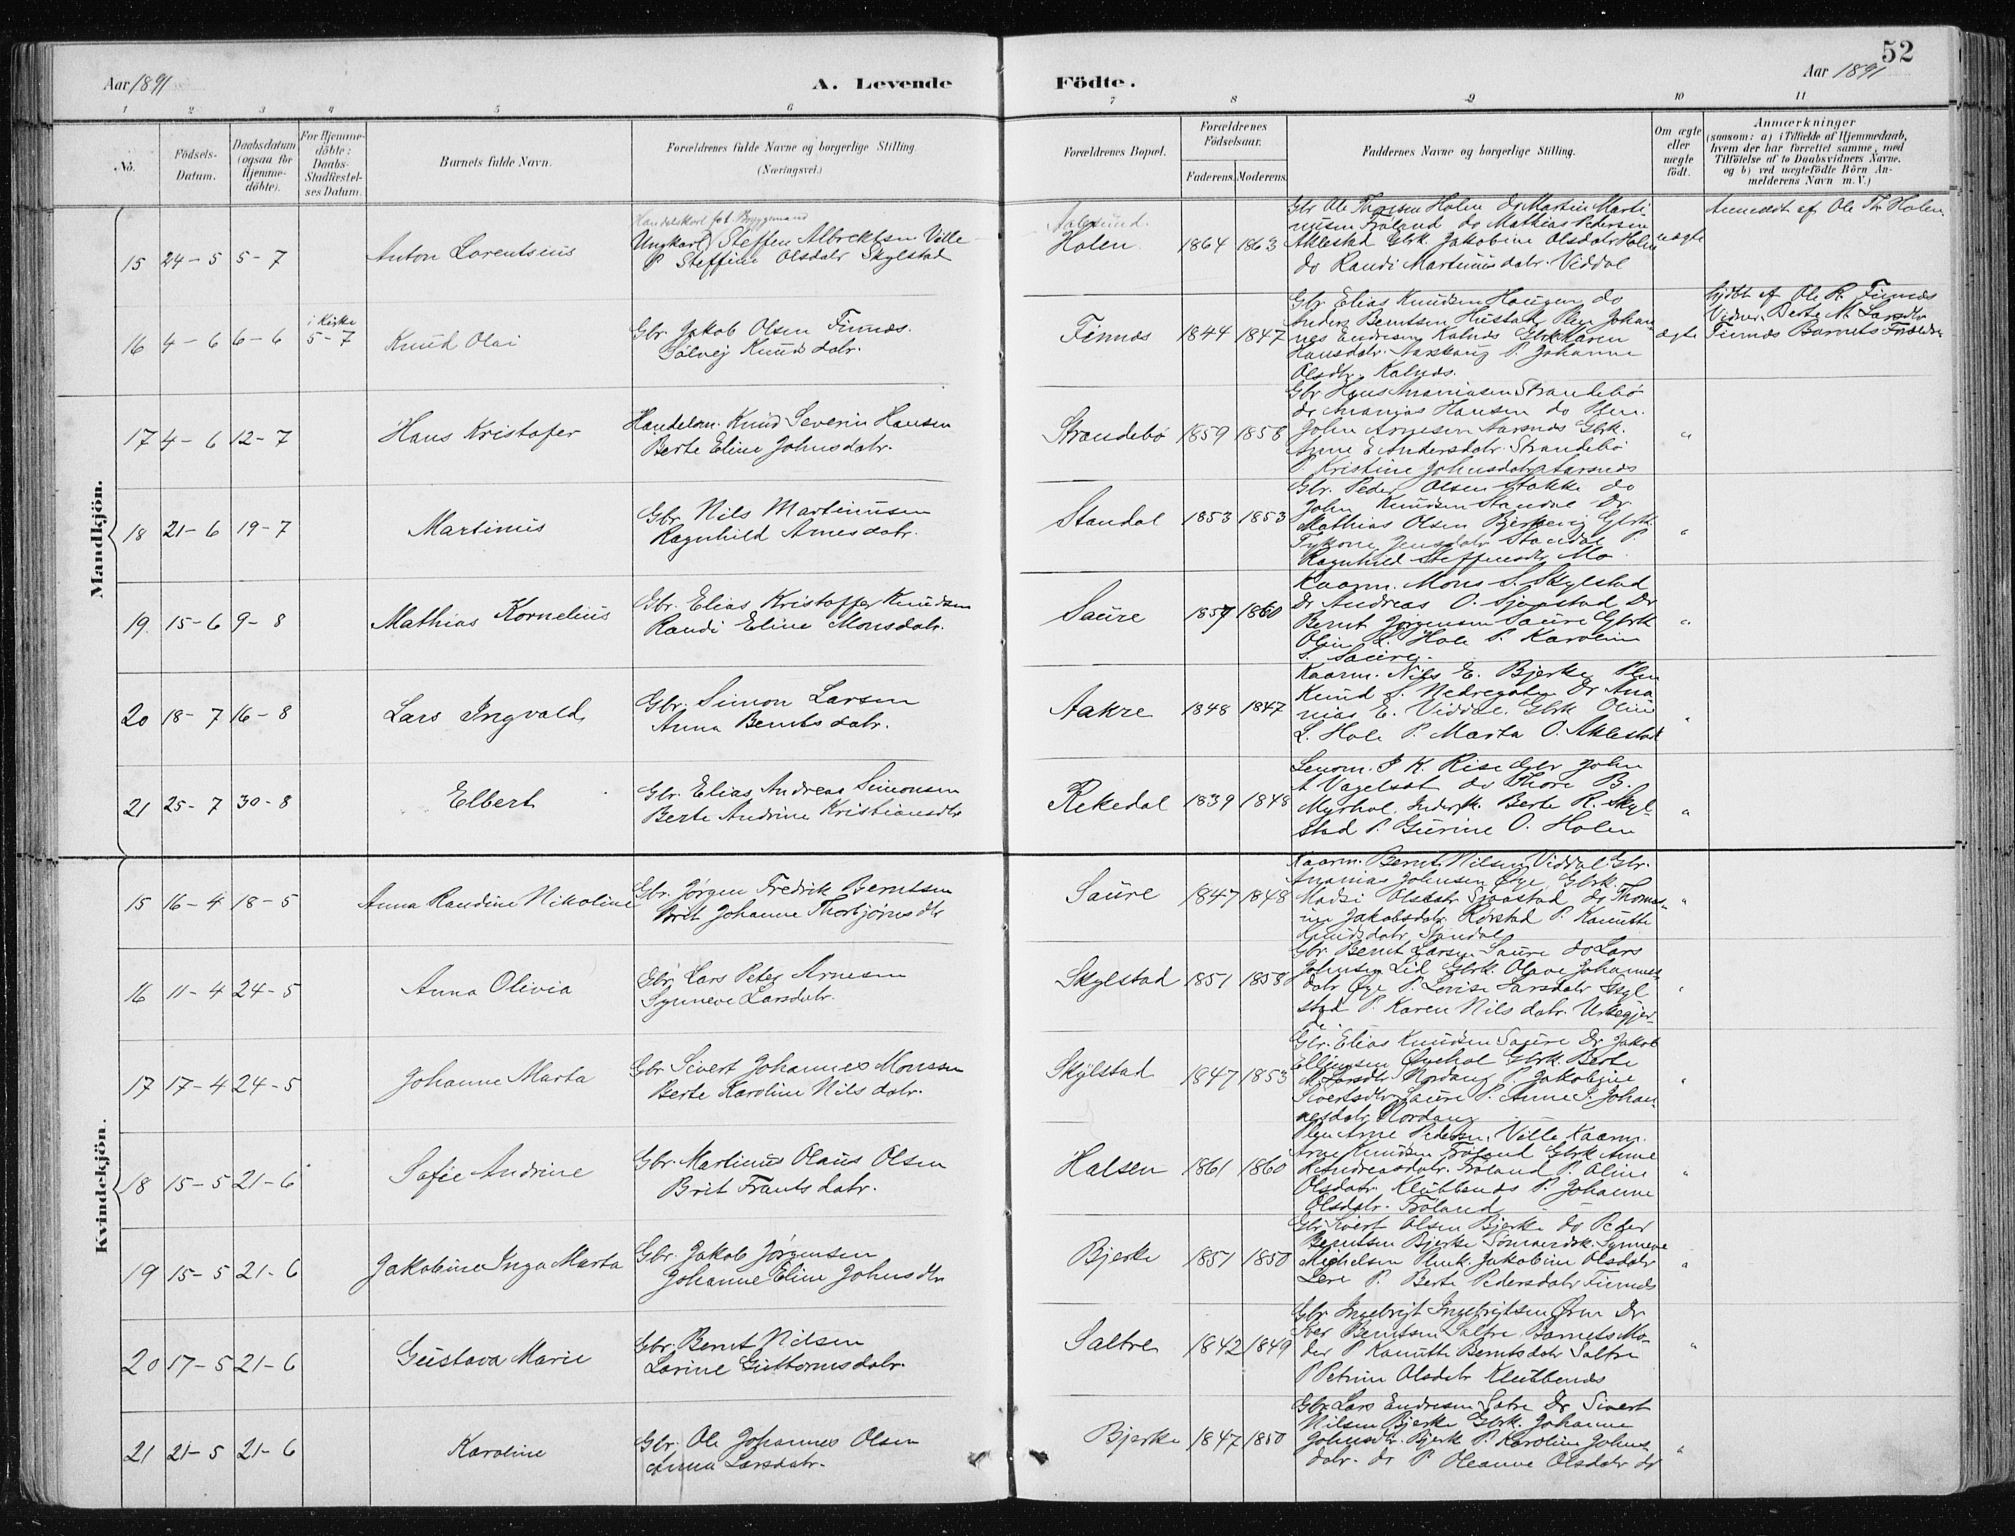 52
Aar 1891
A. Levende
Födte.
Aar 1891
1 2 3 4 5 6 7 8 9 10 11
No.
Födsels-Datum.
Daabsdatum (ogsaa for Hjemme-döbte).
For Hjemme-döbte: Daabs-Stadfæstel-ses Datum.
Barnets fulde Navn.
Forældrenes fulde Navne og borgerlige Stilling. (Næringsvei.)
Forældrenes Bopæl.
Forældrenes Födselsaar.
Faderens. Moderens.
Faddernes Navne og borgerlige Stilling.
Om ægte eller uægte födt.
Anmærkninger
(saasom: a) i Tilfælde af Hjemmedaab, hvem der har forrettet samme, med Tilföielse af to Daabsvidners Navne, og b) ved uægtefödte Börn An-melderens Navn m. V.)
Mandkjön.
15 24-5 5-7 Anton Lorentsius
Ungkarl Steffen Albrektsen Ville
P. Steffine Olsdatr Skylstad
Holen 1864 1863
Gbr Ole Thorsen Holen do Martin Marti
nusen Fröland do Mathias Pedersen
Aklestad Gbrk. Jakobine Olsdatr Holen
do Randi Martinusdatr. Viddal
uægte
Anmeldt af Ole Th. Holen
16 4-6 6-6 i Kirke 5-7 Knud Olai
Gbr. Jakob Olsen Finnæs.
Sölvej Knudsdatr.
Finnæs 1844 1847
Gbr. Elias Knudsen Haugen do
Anders Berntsen Hustak Pleje Johan
nes Endresen Kalnæs Gbrk Karen
Hansdatr. Aarskoug P. Johanne
Olsdtr. Kalnæs.
ægte
hjdbt af Ole R. Finnæs
Vidner: Berte M. Larsdtr
Finnæs Barnets Forældre
17 4-6 12-7 Hans Kristofer
Handelsm. Knud Severin Hansen
Berte Eline Johnsdatr.
Strandebö 1859 1858
Gbr Hans Ananiasen Strandebö
do Ananias Hansen do
John Arnesen Aarsnes Gbrk.
Anne E Andersdatr. Strandebö
P. Kristine Johnsdatr Aarsnes
"
18 21-6 19-7 Martinus
Gbr. Nils Martinusen
Ragnhild Arnesdatr.
Standal 1853 1853
Gbr. Peder Olsen Stokke do
John Knudsen Standal Dr.
Mathias Olsen Bjerkevig Gbrk.
Jensdatr Standal P
Ragnhild Steffensdtr Mo
"
19. 15-6 9-8 Mathias Kornelius
Gbr. Elias Kristoffer Knudsen
Randi Eline Monsdatr.
Saure 1857 1860
Kaarm. Mons S. Skylstad
Dr Andreas O. Sjöastad Dr
Bernt Jörgensen Saure Gbrk
Oline L. Hole P. Karoline
S. Saure.
"
20 18-7 16-8 Lars Ingvald
Gbr. Simon Larsen
Anna Berntsdatr.
Aakre 1848 1847
Kaarm. Nils E. Bjerke Plm
Knud S. Dr Ana
nias E. Viddal. Gbrk Oline
L. Hole P. Marta O. Aklestad
"
21 25-7 30-8 Elbert
Gbr. Elias Andreas Simonsen
Berte Andrine Kristiansdtr
Rekedal 1839 1848
K. Rise Gbr John
A Vagelsat do Thore B.
Myrhol Berte R. Skyl-
stad P. Gurine O. Holen
"
Kvindekjön.
15 16-4 18-5 Anna Randine Nikoline
Gbr. Jörgen Fredrik Berntsen
Brit Johanne Thorbjörnsdtr
Saure 1847 1848
Kaarm. Bernt Nilsen Viddal Gbr.
Ananias Johnsen Öye Gbrk.
Madsi Olsdatr Sjöastad do Thomas-
ine Jakobsdatr Rörstad P. Kanutte
Knudsdatr Standal
"
16 11-4 24-5 Anna Olivia
Gbr. Lars Peter Arnesen
Synneve Larsdatr.
Skylstad 1851 1858
Gbr. Bernt Larsen Saure do Lars
Johnsen Lid Gbrk. Olave Johannes-
datr Öye P. Lovise Larsdatr Skyl
stad P. Karen Nilsdatr. Urkegjer-
"
17 17-4 24-5 Johanne Marta
Gbr Sivert Johannes Monssen
Berte Karoline Nilsdatr.
Skylstad 1847 1853
Gbr. Elias Knudsen Saure Dr Jakob
Ellingsen Gbrk. Berte
M Larsdtr Nordang P. Jakobine
Sivertsdtr Saure P. Anne S. Johan-
nesdatr. Nordang
"
18 15-5 21-6 Sofie Andrine
Gbr. Martinus Olaus Olsen
Brit Frantsdatr.
Halsen 1861 1860
Arne Pedersen Ville Kaarm.
Arne Knudsen Fröland Gbrk Anne
Andreasdatr. Fröland P. Oline
Olsdatr. Klubbenæs P. Johanne
Olsdatr. Fröland
"
19 15-5 21-6 Jakobine Inga Marta
Gbr. Jakob Jörgensen
Johanne Eline Johnsdtr
Bjerke 1851 1850
Gbr. Sivert Olsen Bjerke do Peder
Berntsen Bjerke Synneve
Michelsen Jakobine Olsdatr
Leve P. Berte Pedersdatr Finnæs
"
20 17-5 21-6 Gustava Marie
Gbr. Bernt Nilsen
Larine Guttormsdatr.
Saltre 1842 1849
Gbr. Ingebrigt Ingebrigtsen Dr
Iver Berntsen Saltre Barnets Mo-
der P Kanutte Berntsdatr Saltre
P Petrine Olsdatr Klubbenæs
"
21 21-5 21-6 Karoline
Gbr. Ole Johannes Olsen
Anna Larsdatr.
Bjerke 1847 1850
Gbr. Lars Endresen Satre Dr Sivert
Nilsen Bjerke Gbrk. Johanne
Johnsdtr Bjerk P. Karoline Johns-
datr. do P Oleanne Olsdatr do
"